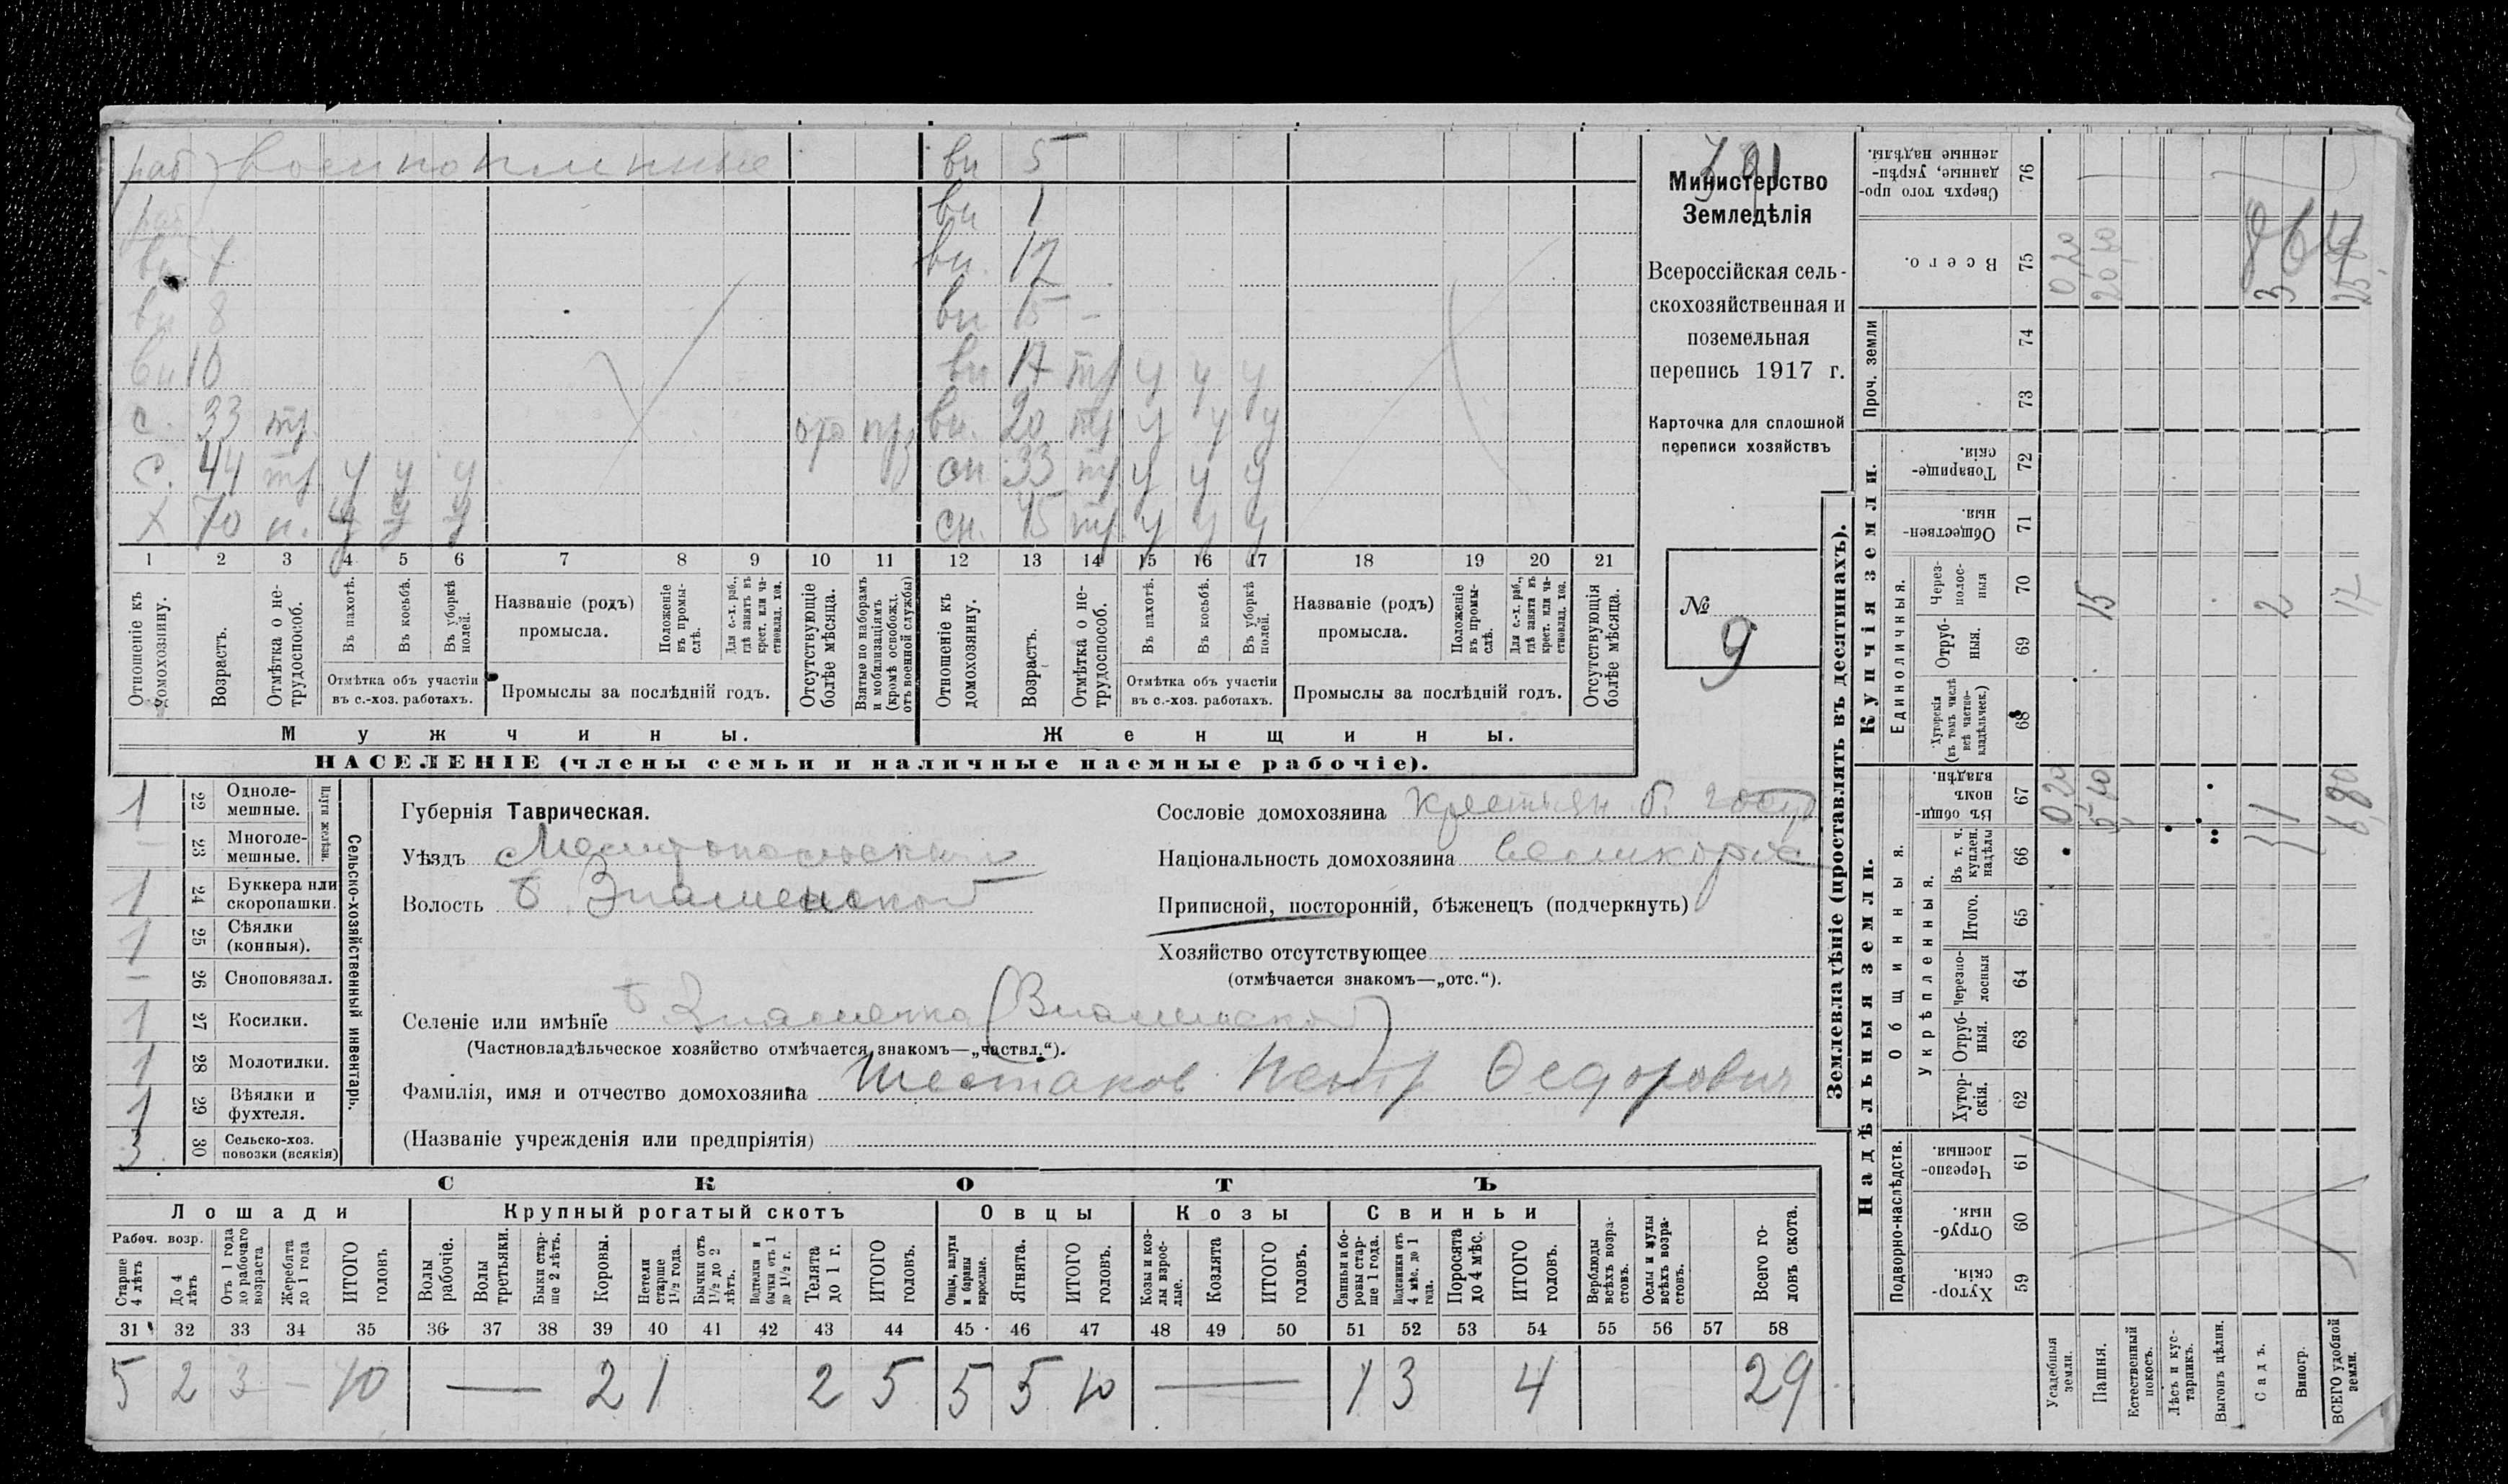 раб военнопленные вн 5
раб вн 1
вн 4 вн. 12
вн 8 вн 15 -
вн 10 вн 17 тр у у у
с. 33 тр. отс пр вн. 20 тр у у у
с. 44 тр у у у сн 33 тр у у у
х 70 н. у у у сн. 45 тр у у у
1 2 3 4 5 6 7 8 9 10 11 12 13 14 15 16 17 18 19 20 21
Отношеніе къ домохозяину.
Возрастъ.
Отмѣтка о не-
трудоспособ.
Въ пахотѣ.
Въ косьбѣ.
Въ уборкѣ
полей.
Отмѣтка объ участіи
въ с.-хоз. работахъ.
Названіе (родъ)
промысла.
Положеніе
въ промы-
слѣ.
Для с.-х. раб.,
гдѣ занятъ въ
крест. или ча-
стновлад. хоз.
Промыслы за послѣдній годъ.
Отсутствующіе
болѣе мѣсяца.
Взятые по наборамъ
и мобилизаціямъ
(кромѣ освобожд.
отъ военной службы)
Отношеніе къ
домохозяину.
Возрастъ.
Отмѣтка о не-
трудоспособ.
Въ пахотѣ.
Въ косьбѣ.
Въ уборкѣ
полей.
Отмѣтка объ участіи
въ с.-хоз. работахъ.
Названіе (родъ)
промысла.
Положеніе
въ промы-
слѣ.
Для с.-х. раб.,
гдѣ занята въ
крест. или ча-
стновлад. хоз.
Промыслы за послѣдній годъ.
Отсутствующія
болѣе мѣсяца.
Мужчины. Женщины.
НАСЕЛЕНІЕ (члены семьи и наличные наемные рабочіе).
Министерство
Земледѣлія
Всероссійская сель-
скохозяйственная и
поземельная
перепись 1917 г.
Карточка для сплошной
переписи хозяйствъ
№
9
1 22 Одноле-
мешные.
— 23 Многоле-
мешные.
Плуги желѣзн.
1 24 Буккера или
скоропашки.
1 25 Сѣялки
(конныя).
— 26 Сноповязал.
1 27 Косилки.
1 28 Молотилки.
1 29 Вѣялки и
фухтеля.
3 30 Сельско-хоз.
повозки (всякія)
Сельско-хозяйственный инвентарь.
Губернія Таврическая.
Уѣздъ Мелитопольскій
Волость Б Знаменской
Селеніе или имѣніе Б Знаменка (Знаменской)
(Частновладѣльческое хозяйство отмѣчается знакомъ—„частвл.“).
Фамилія, имя и отчество домохозяина Шестаков Петр Федорович
(Названіе учрежденія или предпріятія)
Сословіе домохозяина крестьян б. госуд
Національность домохозяина великорос
Приписной, посторонній, бѣженецъ (подчеркнуть)
Хозяйство отсутствующее
(отмѣчается знакомъ—„отс.“).
СКОТЪ
Лошади Крупный рогатый скотъ Овцы Козы Свиньи
Рабоч. возр.
Старше
4 лѣтъ
До 4
лѣтъ
Отъ 1 года
до рабочаго
возраста
Жеребята
до 1 года
ИТОГО
головъ
Волы
рабочіе.
Волы
третьяки.
Быки стар-
ше 2 лѣтъ.
Коровы.
Нетели
старше
1½ года.
Бычки отъ
1½ до 2
лѣтъ.
Подтелки и
бычки отъ 1
до 1½ г.
Телята
до 1 г.
ИТОГО
головъ.
Овцы, валухи
и бараны
взрослые.
Ягнята.
ИТОГО
головъ.
Козы и коз-
лы взрос-
лые.
Козлята
ИТОГО
головъ.
Свиньи и бо-
ровы стар-
ше 1 года.
Подсвинки отъ
4 мѣс. до 1
года.
Поросята
до 4 мѣс.
ИТОГО
головъ.
Верблюды
всѣхъ возра-
стовъ.
Ослы и мулы
всѣхъ возра-
стовъ.
Всего го-
ловъ скота.
31 32 33 34 35 36 37 38 39 40 41 42 43 44 45 46 47 48 49 50 51 52 53 54 55 56 57 58
5 2 3 — 10 — 2 1 2 5 5 5 10 — 1 3 4 29
Землевладѣніе (проставлять въ десятинахъ).
Надѣльныя земли. Купчія земли. Проч. земли
Подворно-наслѣдств. Общинныя. Укрѣпленныя. Единоличныя.
Хутор-
скія. 59
Отруб-
ныя. 60
Черезпо-
лосныя. 61
Хутор-
скія. 62
Отруб-
ныя. 63
Черезпо-
лосныя 64
Итого. 65
Въ т. ч.
куплен.
надѣлы 66
Въ общин-
номъ
владѣн. 67
Хуторскія
(въ томъ числѣ
всѣ частно-
владѣльческ.) 68
Отруб-
ныя. 69
Через-
полос-
ныя 70
Обществен-
ныя. 71
Товарище-
скія. 72
73
74
Всего. 75
Сверхъ того про-
данные, укрѣп-
ленные надѣлы. 76
Усадебныя
земли. 0,20 0,20
Пашня. 5,10 15 20,10
Естественный
покосъ.
Лѣсъ и кус-
тарникъ.
Выгонъ цѣлин.
Садъ. 1 2 3
Виногр.
ВСЕГО удобной
земли. 17